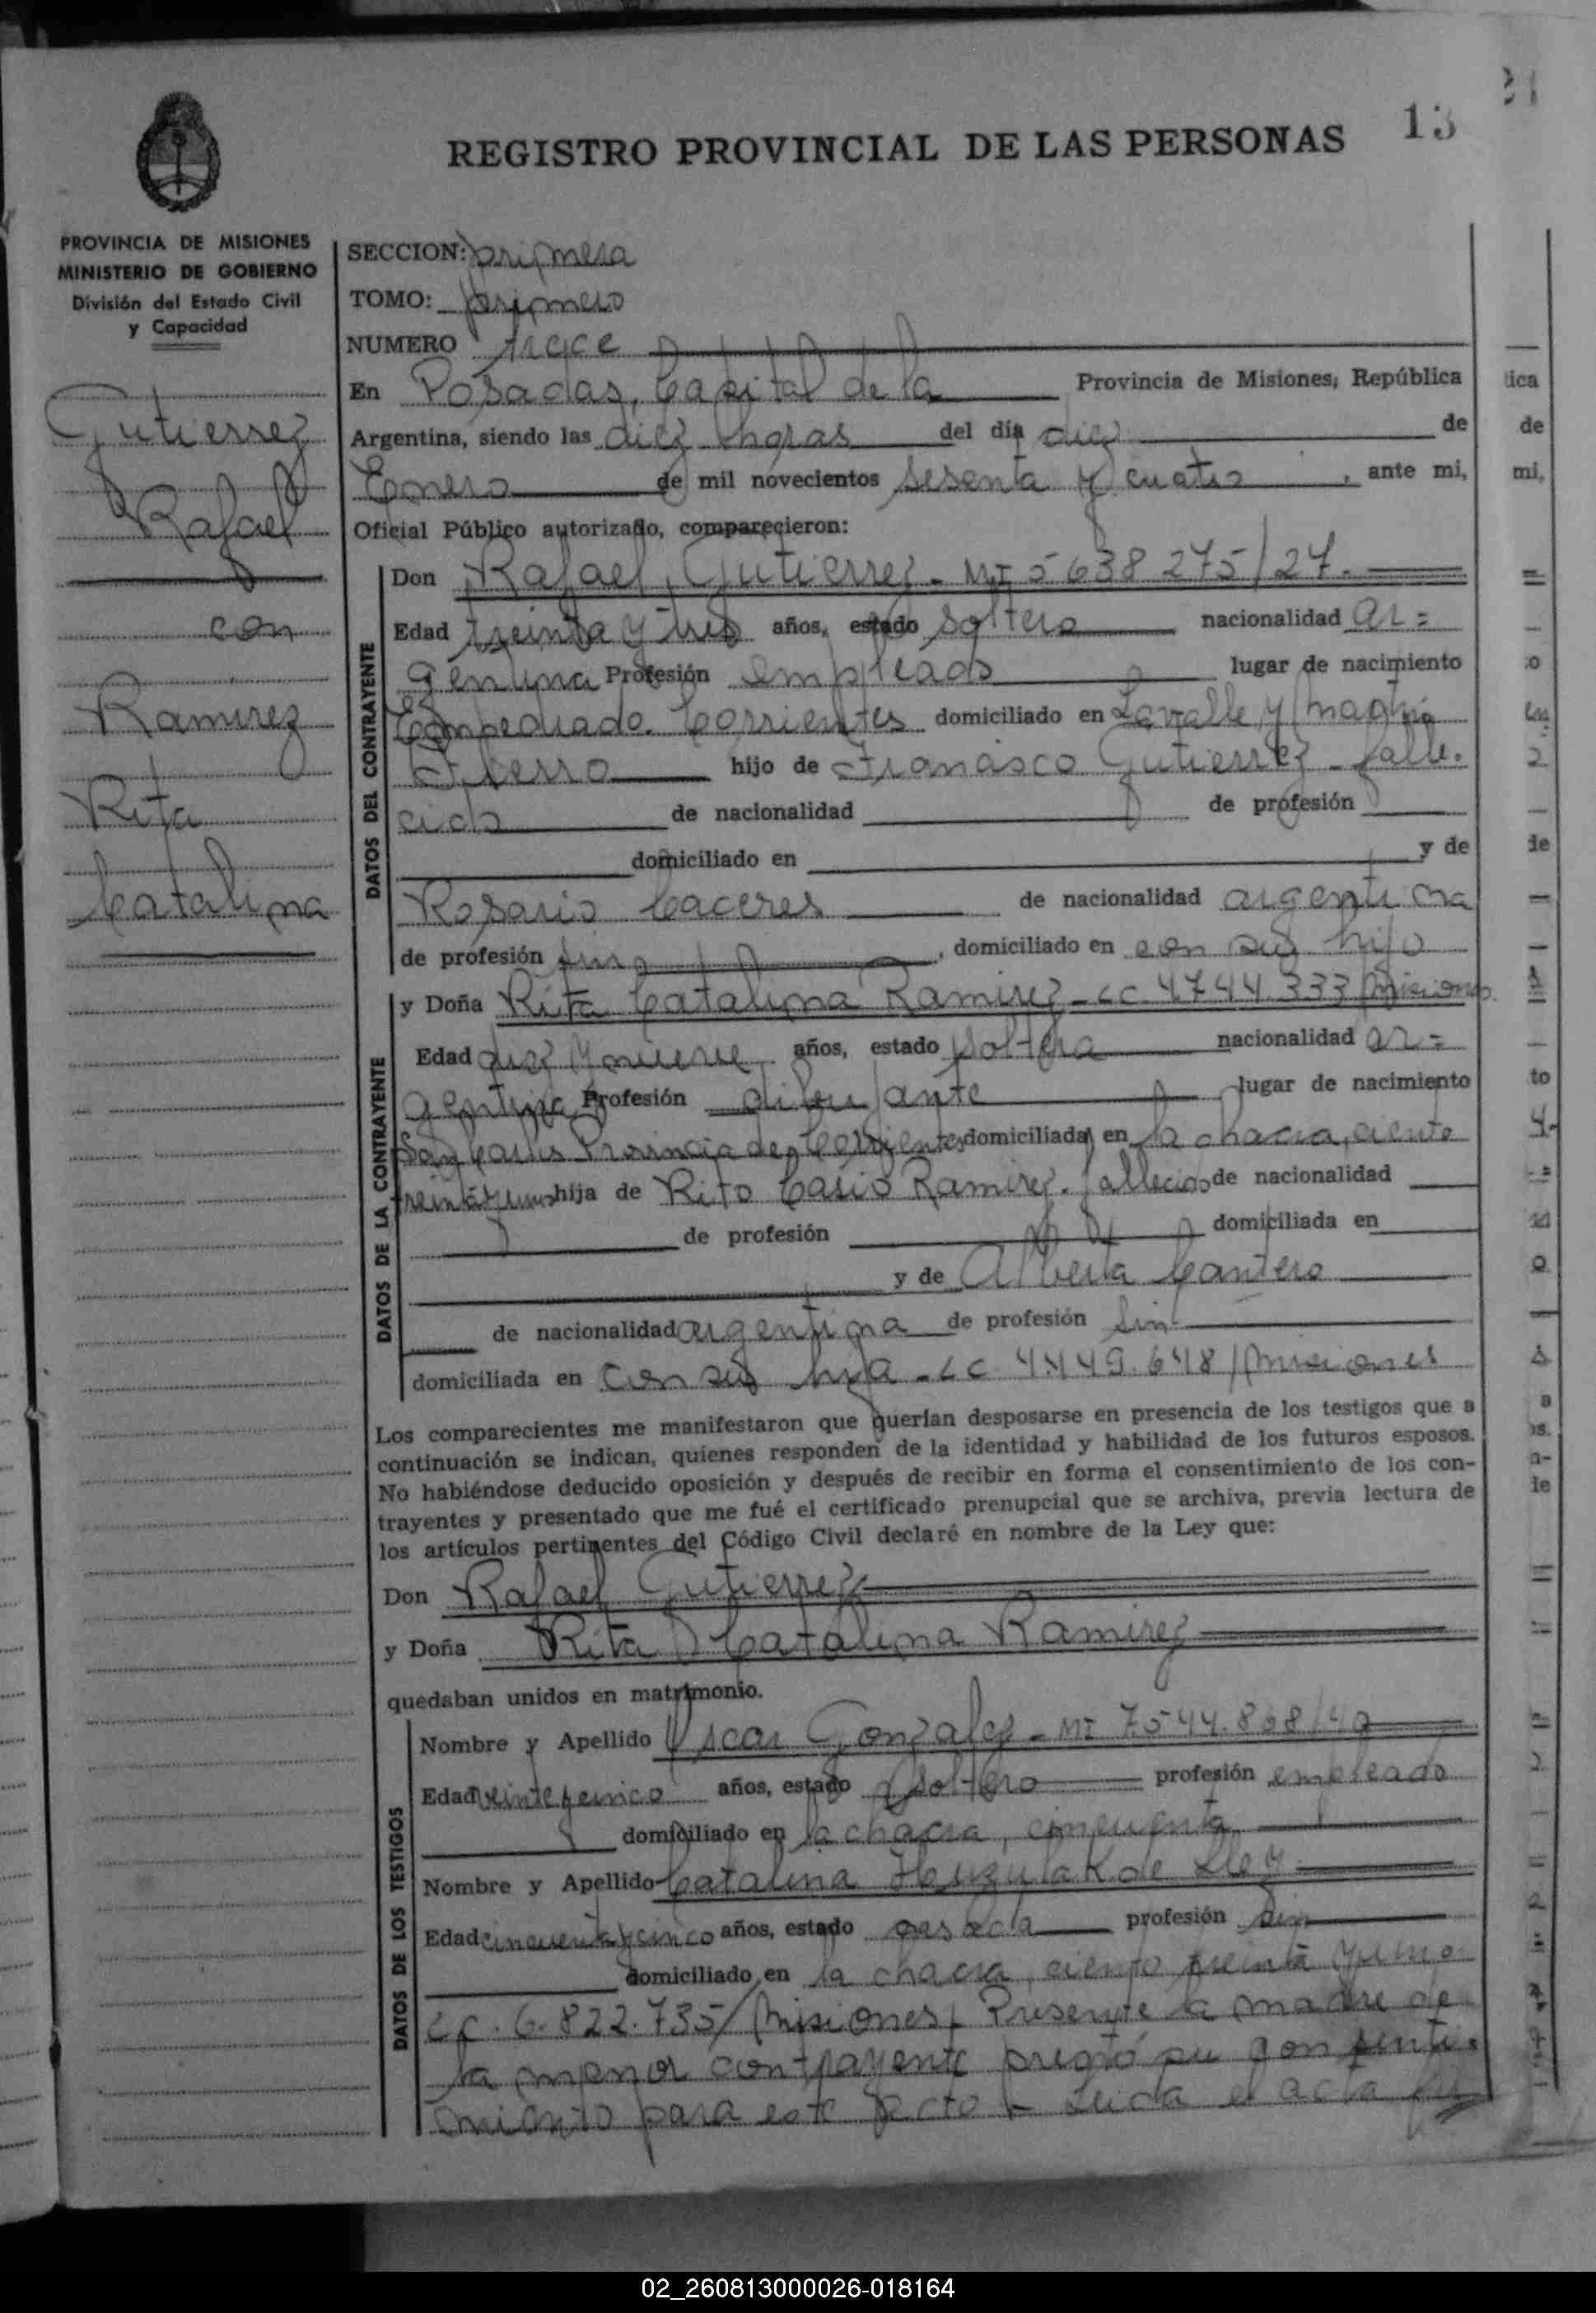 REGISTRO PROVINCIAL DE LAS PERSONAS
13
PROVINCIA DE MISIONES
MINISTERIO DE GOBIERNO
División del Estado Civil
y Capacidad
Gutierrez
Rafael
con
Ramirez
Rita
Catalina
SECCION: primera
TOMO: primero
NUMERO trece
En Posadas, Capital de la Provincia de Misiones, República
Argentina, siendo las diez horas del día diez de
Enero de mil novecientos sesenta y cuatro, ante mi,
Oficial Público autorizado, comparecieron:
DATOS DEL CONTRAYENTE
Don Rafael Gutierrez - MI 5638275/27.
Edad treinta y tres años, estado soltero nacionalidad ar=
gentina Profesión empleado lugar de nacimiento
Empedrado. Corrientes domiciliado en Lavalle y
Fierro hijo de Francisco Gutierrez - falle.
cido de nacionalidad de profesión
domiciliado en y de
Rosario Caceres de nacionalidad argentina
de profesión sin, domiciliado en con su hijo
DATOS DE LA CONTRAYENTE
y Doña Rita Catalina Ramirez - LC. 4744.333/Misiones.
Edad diez y nueve años, estado soltera nacionalidad ar=
gentina Profesión dibujante lugar de nacimiento
San Carlos Provincia de Corrientes domiciliada en la chacra, ciento
treinta y uno hija de Rito Casio Ramirez. fallecido de nacionalidad
de profesión domiciliada en
y de Alberta Cantero
de nacionalidad argentina de profesión sin
domiciliada en con su hija - LC. 4.449.648/Misiones
Los comparecientes me manifestaron que querían desposarse en presencia de los testigos que a
continuación se indican, quienes responden de la identidad y habilidad de los futuros esposos.
No habiéndose deducido oposición y después de recibir en forma el consentimiento de los con-
trayentes y presentado que me fué el certificado prenupcial que se archiva, previa lectura de
los artículos pertinentes del Código Civil declaré en nombre de la Ley que:
Don Rafael Gutierrez
y Doña Rita Catalina Ramirez
quedaban unidos en matrimonio.
DATOS DE LOS TESTIGOS
Nombre y Apellido Oscar Gonzalez - MI 7544.868/
Edad veinte y cinco años, estado soltero profesión empleado
domiciliado en la chacra, cincuenta
Nombre y Apellido Catalina Huzulak de
Edad cincuenta y cinco años, estado casada profesión sin
domiciliado en la chacra, ciento treinta y uno
LC. 6.822.735/Misiones. Presente la madre de
la menor contrayente prestó su consenti=
miento para este acto - Leida el acta
02_260813000026-018164